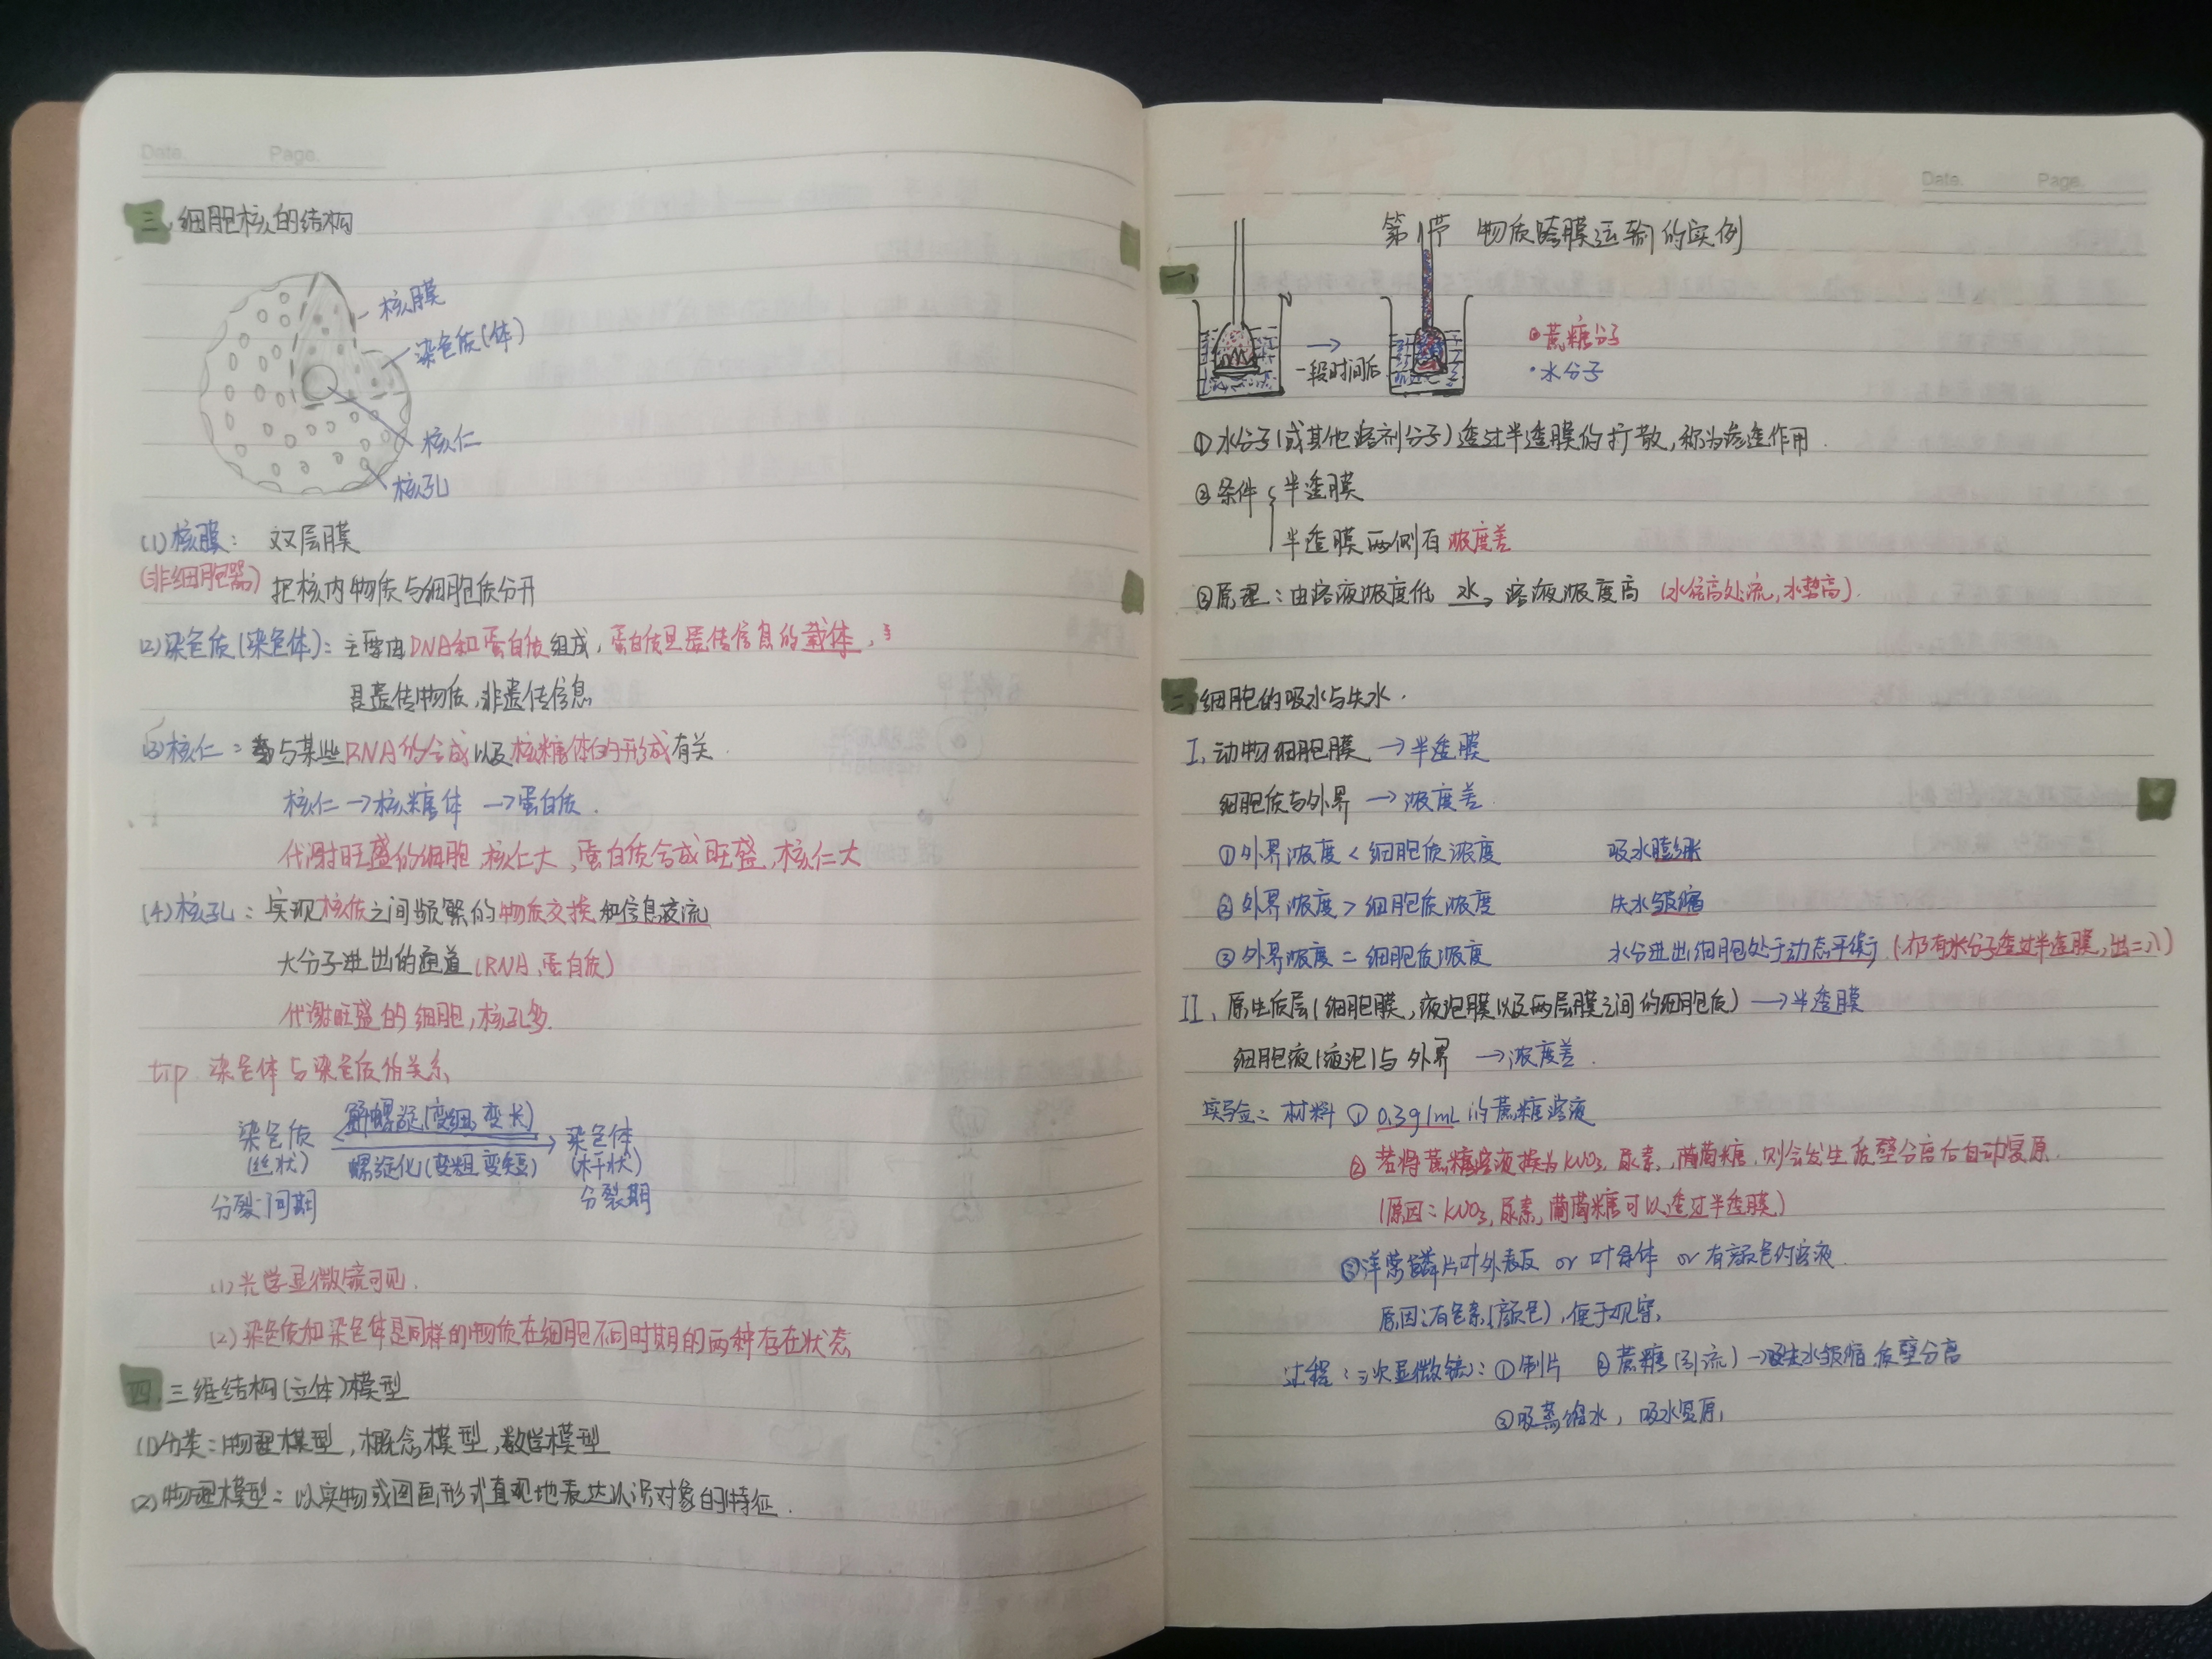 Date. Page.
三、细胞核的结构
核膜
染色质(体)
核仁
核孔
(1)核膜: 双层膜
(非细胞器) 把核内物质与细胞质分开
(2)染色质(染色体): 主要由DNA和蛋白质组成,蛋白质是遗传信息的载体,
是遗传物质,非遗传信息
(3)核仁: 与某些RNA的合成以及核糖体的形成有关.
核仁→核糖体 →蛋白质.
代谢旺盛的细胞,核仁大,蛋白质合成旺盛,核仁大
(4)核孔: 实现核质之间频繁的物质交换和信息交流
大分子进出的通道(RNA、蛋白质)
代谢旺盛的细胞,核孔多.
tip 染色体与染色质的关系
解螺旋(变细,变长)
染色质 染色体
(丝状) 螺旋化(变粗,变短) (杆状)
分裂间期 分裂期
(1)光学显微镜可见.
(2)染色质和染色体是同样的物质在细胞不同时期的两种存在状态
四、三维结构(立体)模型
(1)分类:物理模型,概念模型,数学模型
(2)物理模型: 以实物或图画形式直观地表达认识对象的特征.
Date. Page.
第1节 物质跨膜运输的实例
一、
→
一段时间后
蔗糖分子
·水分子
①水分子(或其他溶剂分子)透过半透膜的扩散,称为渗透作用.
②条件 半透膜
半透膜两侧有浓度差
③原理:由溶液浓度低 水→ 溶液浓度高 (水往高处流,水势高).
二、细胞的吸水与失水.
I、动物细胞膜 →半透膜
细胞质与外界 →浓度差.
①外界浓度<细胞质浓度 吸水膨胀
②外界浓度>细胞质浓度 失水皱缩
③外界浓度=细胞质浓度 水分进出细胞处于动态平衡.(仍有水分子透过半透膜,出=入)
II、原生质层(细胞膜,液泡膜以及两层膜之间的细胞质) →半透膜
细胞液(液泡)与外界 →浓度差.
实验: 材料 ① 0.3g/mL的蔗糖溶液
② 若将蔗糖溶液换为KNO3,尿素,葡萄糖,则会发生质壁分离后自动复原.
(原因: KNO3,尿素,葡萄糖可以透过半透膜)
③洋葱鳞片叶外表皮 or 叶绿体 or 有颜色的溶液.
原因:有色素(颜色),便于观察.
过程:三次显微镜:①制片 ②蔗糖(引流)→失水皱缩,质壁分离
③吸蒸馏水,吸水复原.